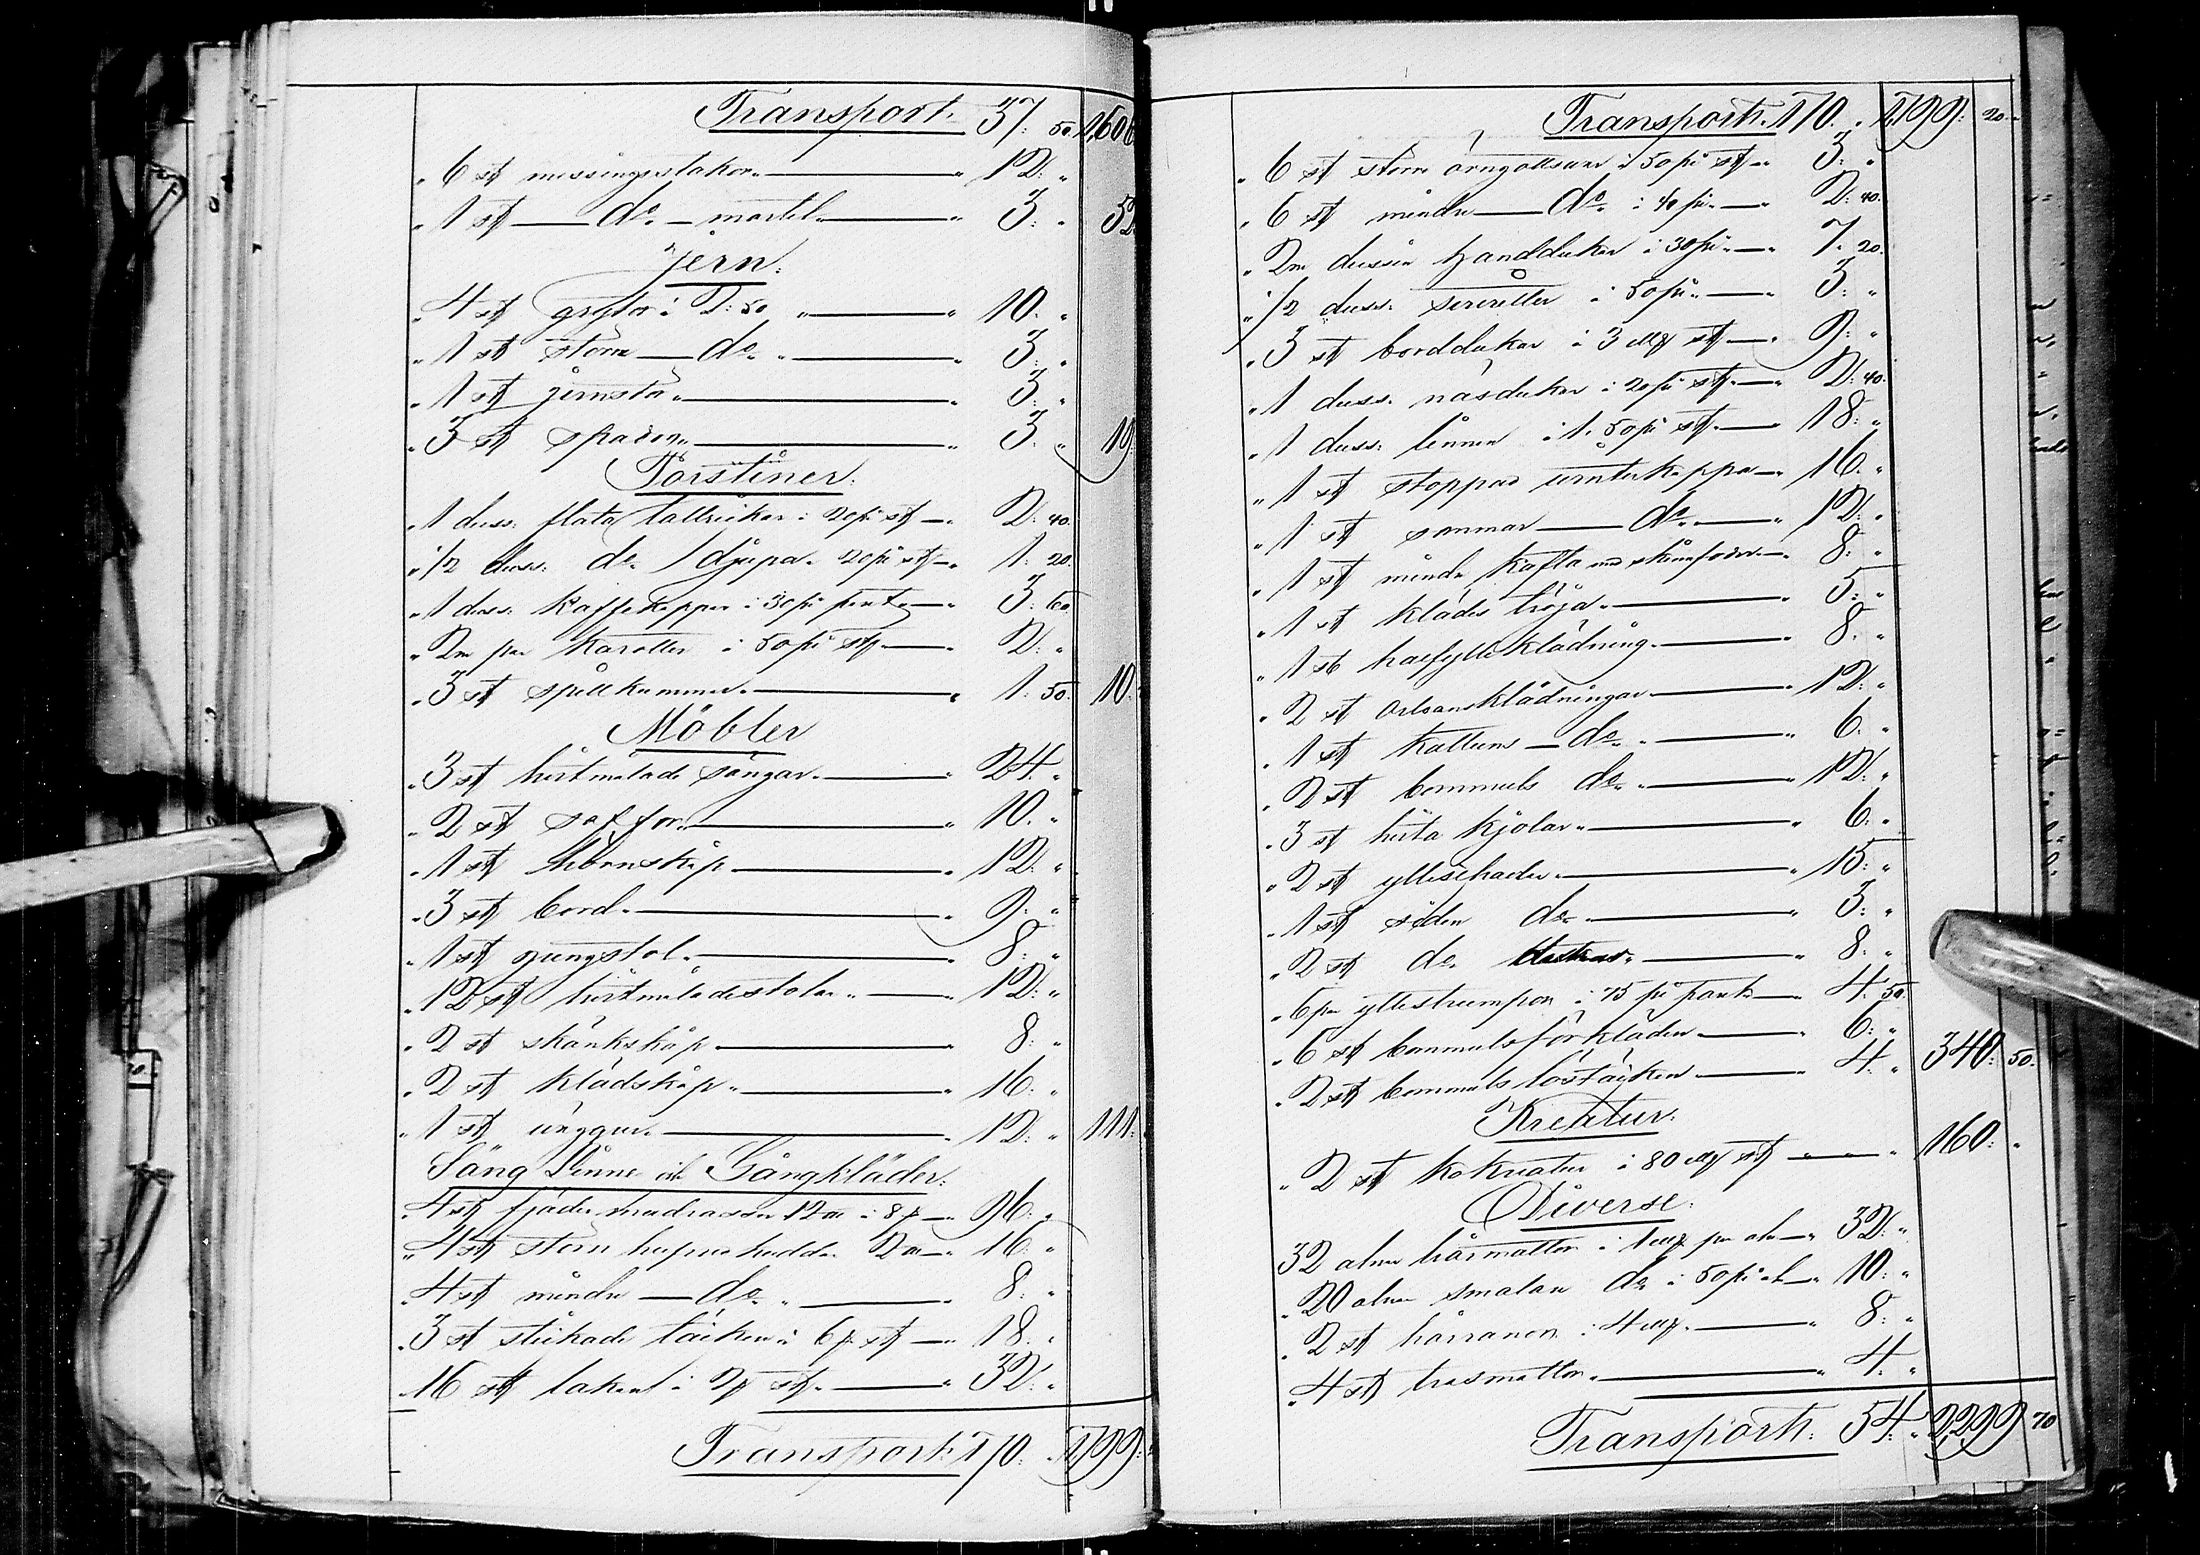 Transport. 37: 50. 1,606
„ 6 st messingsstakar „ — „ 12: „
„ 1 st — do. — mortel — „ 3: „ 52
Jern.
„ 4 st grytor i 2: 50 „ — „ 10: „
„ 1 st större — do. „ — „ 3: „
„ 1 st jernstör „ — „ 3: „
„ 3 st spador „ — „ 3: „ 19:
Porsliner.
„ 1 duss: flata tallrickar i 20 pi st — „ 2: 40.
„ 1/2 duss: do. djupa „ 20 pi st — „ 1: 20.
„ 1 duss: kaffekoppar i 30 pi paret — „ 3: 60.
„ 2ne par karotter i 50 pi st — „ 2: „
„ 3 st spillkummor. — „ 1: 50. 10:
Möbler
„ 3 st hvitmålade sängar — „ 24: „
„ 2 st soffor — „ 10: „
„ 1 st hörnskåp — „ 12: „
„ 3 st bord — „ 9: „
„ 1 st gungstol — „ 8: „
„ 12 st hvitmålade stolar „ — „ 12: „
„ 2 st skänkskåp — „ 8: „
„ 2 st klädskåp „ — „ 16: „
„ 1 st — „ 12: „ 111:
Säng Linne och Gångkläder.
„ 4 st fjäder madrasser 12 i 8 — „ 96: „
„ 4 st större hufvudkuddar 2 — „ 16: „
„ 4 st mindre — do. „ — „ 8: „
„ 3 st stickade täcken i 6 st — „ 18: „
„ 16 st lakan i 2 st — „ 32: „
Transport: 170: 1,799:
Transport. 170. „ 1,799: 20.
„ 6 st större örngottsvar i 50 pi st „ 3: „
„ 6 st mindre — do. i 40 pi — „ 2: 40.
„ 2ne dussin handdukar i 30 pi — „ 7: 20.
„ 1/2 duss: servietter i 50 pi — „ 3: „
„ 3 st borddukar i 3 mf st — „ 9: „
„ 1 duss: näsdukar i 20 pi st — „ 2: 40.
„ 1 duss: linnen i 1: 50 pi st — „ 18: „
„ 1 st stoppad vinterkappa — „ 16: „
„ 1 st sommar — do. — „ 12: „
„ 1 st mindre kofta med skinnfoder — „ 8: „
„ 1 st klädes tröja — „ 5: „
„ 1 st halfylle klädning — „ 8: „
„ 2 st Orleansklädningar — „ 12: „
„ 1 st kattuns — do. — „ 6: „
„ 2 st bommuls do. — „ 12: „
„ 3 st hvita kjolar „ — „ 6: „
„ 2 st ylleschalar — „ 15: „
„ 1 st siden do. — „ 3: „
„ 2 st do. — „ 8: „
„ 6 par yllestrumpor i 75 pi paret — „ 4: 50.
„ 6 st bommulsförkläden — „ 6: „
„ 2 st bommuls löstäcken — „ 4: „ 340: 50.
Kreatur.
„ 2 st kokreatur i 80 mf st — „ 160: „
Diverse.
32 alnar hårmattor i 1 mf pr aln — „ 32: „
„ 20 alnar smalare do. i 50 pi al — „ 10: „
„ 2 st i 4 mf. — „ 8: „
„ 4 st trasmattor — „ 4: „
Transport. 54: „ 2,299 70